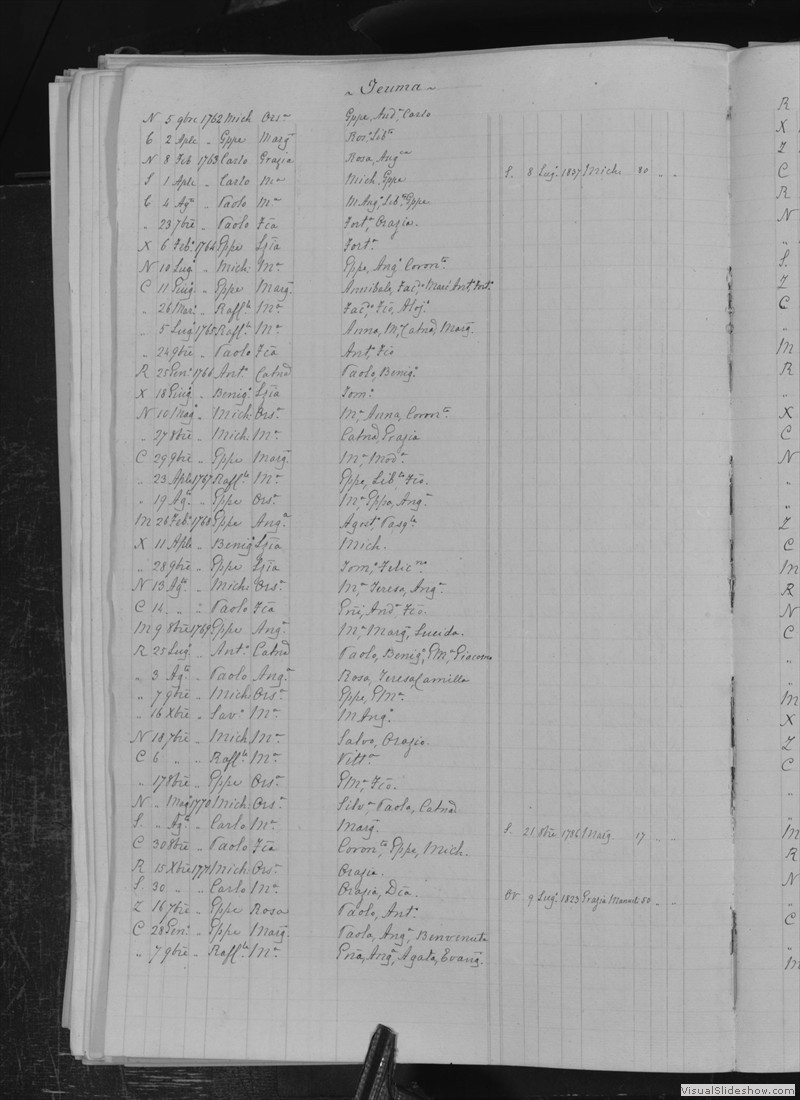 ~ Teuma ~
N 5 9bre 1762 Mich Ors.a Gppe, And.a Carlo
C 2 Aple „ Gppe Marg.a Ros.a Lib.ta
N 8 Feb 1763 Carlo Grazia Rosa, Ang.ca
S 1 Aple „ Carlo M.a Mich. Gppe S. 8 Lug.o 1837 Miche 80 „ „
C 4 Ag.to „ Paolo M.a M Ang.a Lib.ta Gppe
„ 23 7bre „ Paolo Fca Fort.a Orazia.
X 6 Feb.o 1764 Gppe Fort.a
N 10 Lug.o „ Mich. M.a Gppe, Ang.o Coron.ta
C 11 Giug.o „ Gppe Marg.a Annibale,
„ 26 Mar.o „ Raff.le M.a
„ 5 Lug.o 1765 Raff.le M.a Anna, M.a Catnā Marg.a
„ 24 9bre „ Paolo Fca Ant.o Fco
R 25 Gen.o 1766 Ant.o Catnā Paolo, Benig.o
X 18 Giug.o „ Benig.o Tom.o
N 10 Mag.o „ Mich. Ors.a M.a Anna, Coron.ta
„ 27 8bre „ Mich. M.a Catnā Grazia
C 29 9bre „ Gppe Marg.a M.a Mod.a
„ 23 Aple 1767 Raff.le M.a Gppe, Lib.ta Fco.
„ 19 Ag.to „ Gppe Ors.a M.a Gppa, Ang.a
M 26 Feb.o 1768 Gppe Ang.a Agost.o Pasq.le
X 11 Aple „ Benig.o Mich.
„ 28 9bre „ Gppe Tom.o Felic.na
N 13 Ag.to „ Mich. Ors.a M.a Teresa, Ang.a
C 14 „ „ Paolo Fca And.a Fco.
M 9 8bre 1769 Gppe Ang.a M.a Marg.a Lucida.
R 25 Lug.o „ Ant.o Catnā Paolo, Benig.o GM.a Giacomo
„ 3 Ag.to „ Paolo Ang.a Rosa, Teresa Camilla
„ 7 9bre „ Mich. Ors.a Gppe, GM.a
„ 16 Xbre „ Sav.a M.a M Ang.o
N 18 7bre „ Mich. M.a Salvo, Orazio
C 6 „ „ Raff.le M.a Vitt.a
„ 17 8bre „ Gppe Ors.a GM.a Fco.
N „ Mag.o 1770 Mich. Ors.a Silv.a Paola, Catnā
S. „ Ag.to „ Carlo M.a Marg.a S. 21 8bre 1786 Marg.a 17 „ „
C 30 8bre „ Paolo Fca Coron.ta Gppe, Mich.
R 15 Xbre 1771 Mich. Ors.a Orazia.
S. 30 „ „ Carlo M.a Grazia, 9 Lug.o 1823 Grazia Mamul 50 „ „
Z 16 7bre „ Gppe Rosa Paolo, Ant.o
C 28 Gen.o „ Gppe Marg.a Paola, Ang.a Benvenuta
„ 7 9bre „ Raff.le M.a Ang.a Agata, Evang.
R
X
Z
C
R
N
„
S.
Z
C
„
M
R
„
X
C
N
„
„
Z
C
M
R
N
C
„
„
M
X
Z
C
„
„
M
R
N
„
C
„
M
VisualSlideshow.com